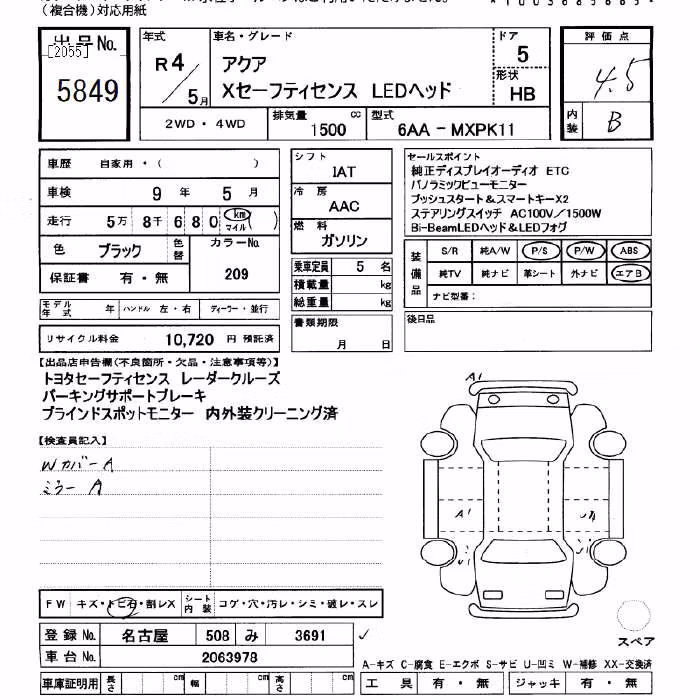 （複合機）対応用紙
出品 No.
[2055]
5849
年式
R4
5月
車名・グレード
アクア
Xセーフティセンス LEDヘッド
ドア
5
形状
HB
2WD・4WD
排気量
1500
cc
型式
6AA－MXPK11
評価点
4.5
内装
B
車歴 自家用・（ ）
車検 9 年 5 月
走行 5万 8千 6 8 0 km マイル( )
色 ブラック 色替 カラーNo.
保証書 有・無 209
モデル年式 年 ハンドル 左・右 ディーラー・並行
リサイクル料金 10,720 円 預託済
シフト
IAT
冷房
AAC
燃料
ガソリン
乗車定員 5 名
積載量 kg
総重量 kg
書類期限
月 日
セールスポイント
純正ディスプレイオーディオ ETC
パノラミックビューモニター
プッシュスタート＆スマートキーX2
ステアリングスイッチ AC100V／1500W
Bi-BeamLEDヘッド＆LEDフォグ
装備品
S/R 純A/W P/S P/W ABS
純TV 純ナビ 革シート 外ナビ エアB
ナビ型番：
後日品
【出品店申告欄(不良箇所・欠品・注意事項等)】
トヨタセーフティセンス レーダークルーズ
パーキングサポートブレーキ
ブラインドスポットモニター 内外装クリーニング済
【検査員記入】
Wカバー A
ミラー A
A1
A1
FW キズ・トビ石・割レX シート内装 コゲ・穴・汚レ・シミ・破レ・スレ
登録 No. 名古屋 508 み 3691 ✓
車台 No. 2063978
車庫証明用 長さ cm 幅 cm 高さ cm
スペア
A-キズ C-腐食 E-エクボ S-サビ U-凹ミ W-補修 XX-交換済
工具 有・無 ジャッキ 有・無